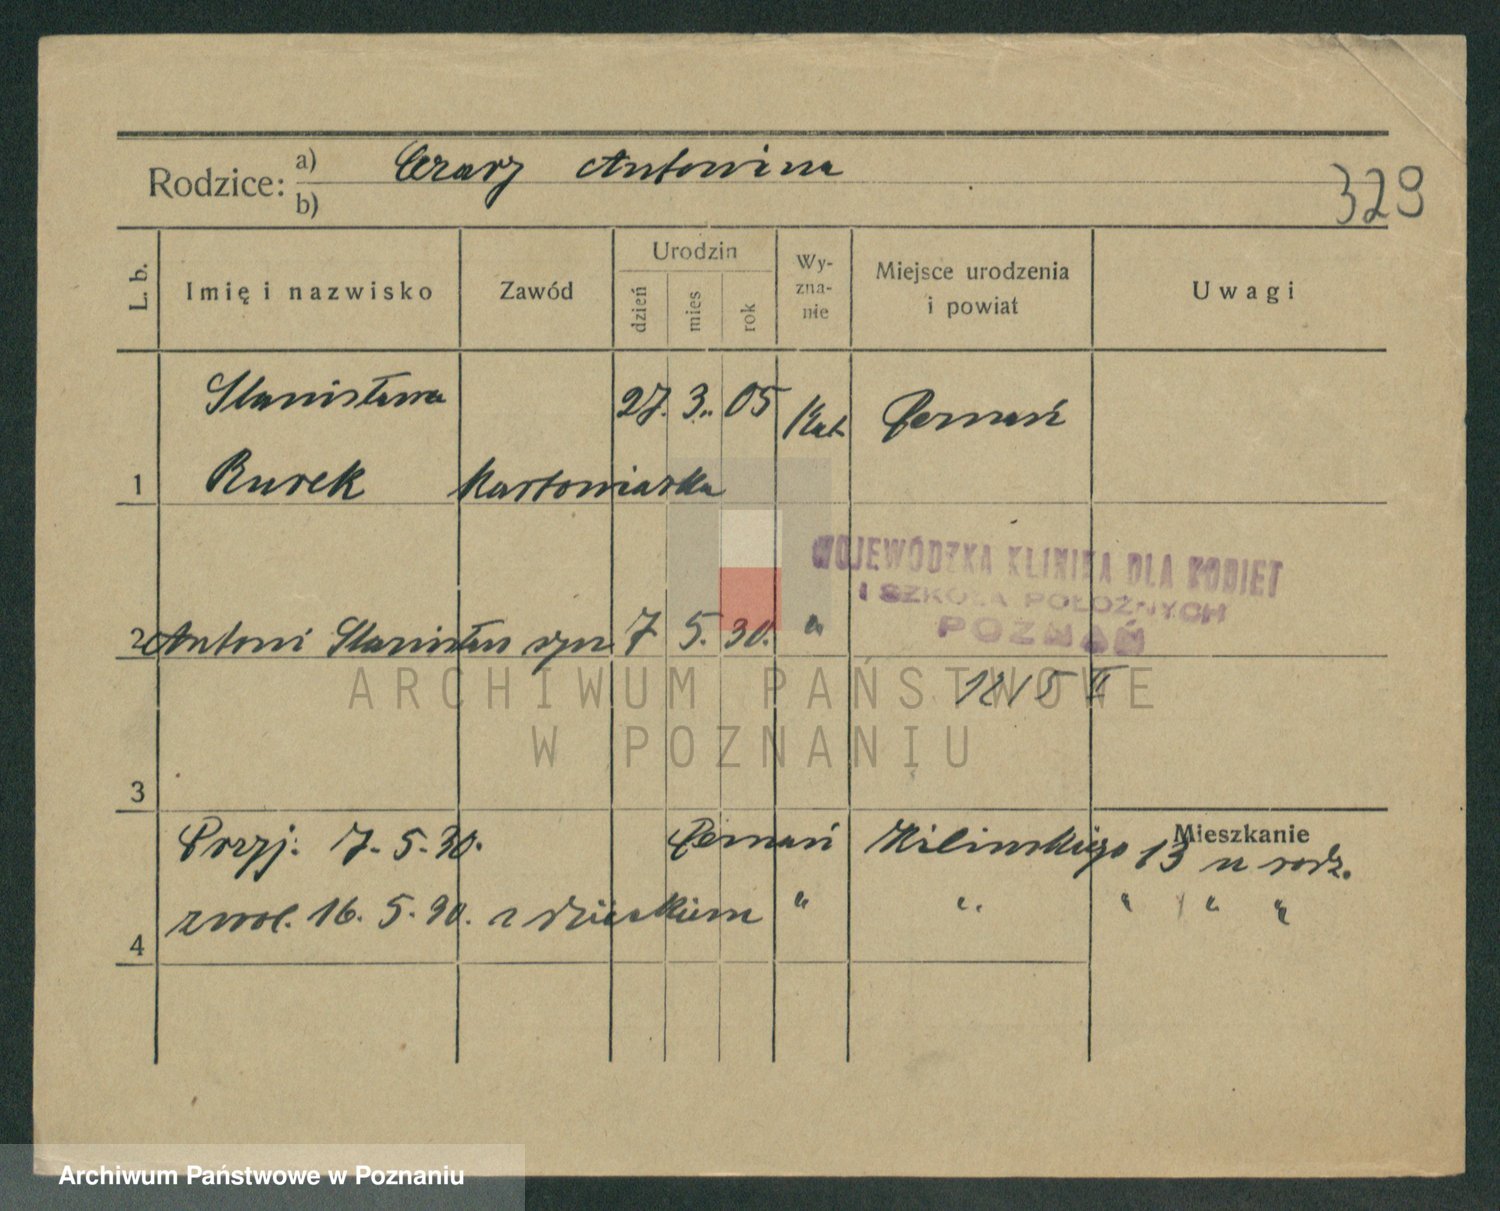 Rodzice: a) Czarz Antonina
b)
329
L. b. Imię i nazwisko Zawód Urodzin dzień mies rok Wy-zna-nie Miejsce urodzenia i powiat Uwagi
Stanisława 27. 3. 05 Kat Poznań
1 Rurek Kartoniarka
WOJEWÓDZKA KLINIKA DLA KOBIET
I SZKOŁA POŁOŻNYCH
POZNAŃ
2 Antoni Stanisław syn 7 5. 30. "
ARCHIWUM PAŃSTWOWE
W POZNANIU
1215 II
3
Mieszkanie
Przyj. 7. 5. 30. Poznań Kilinskiego 13 u rodz.
4 zwol. 16. 5. 30. z dzieckiem " " " " "
Archiwum Państwowe w Poznaniu